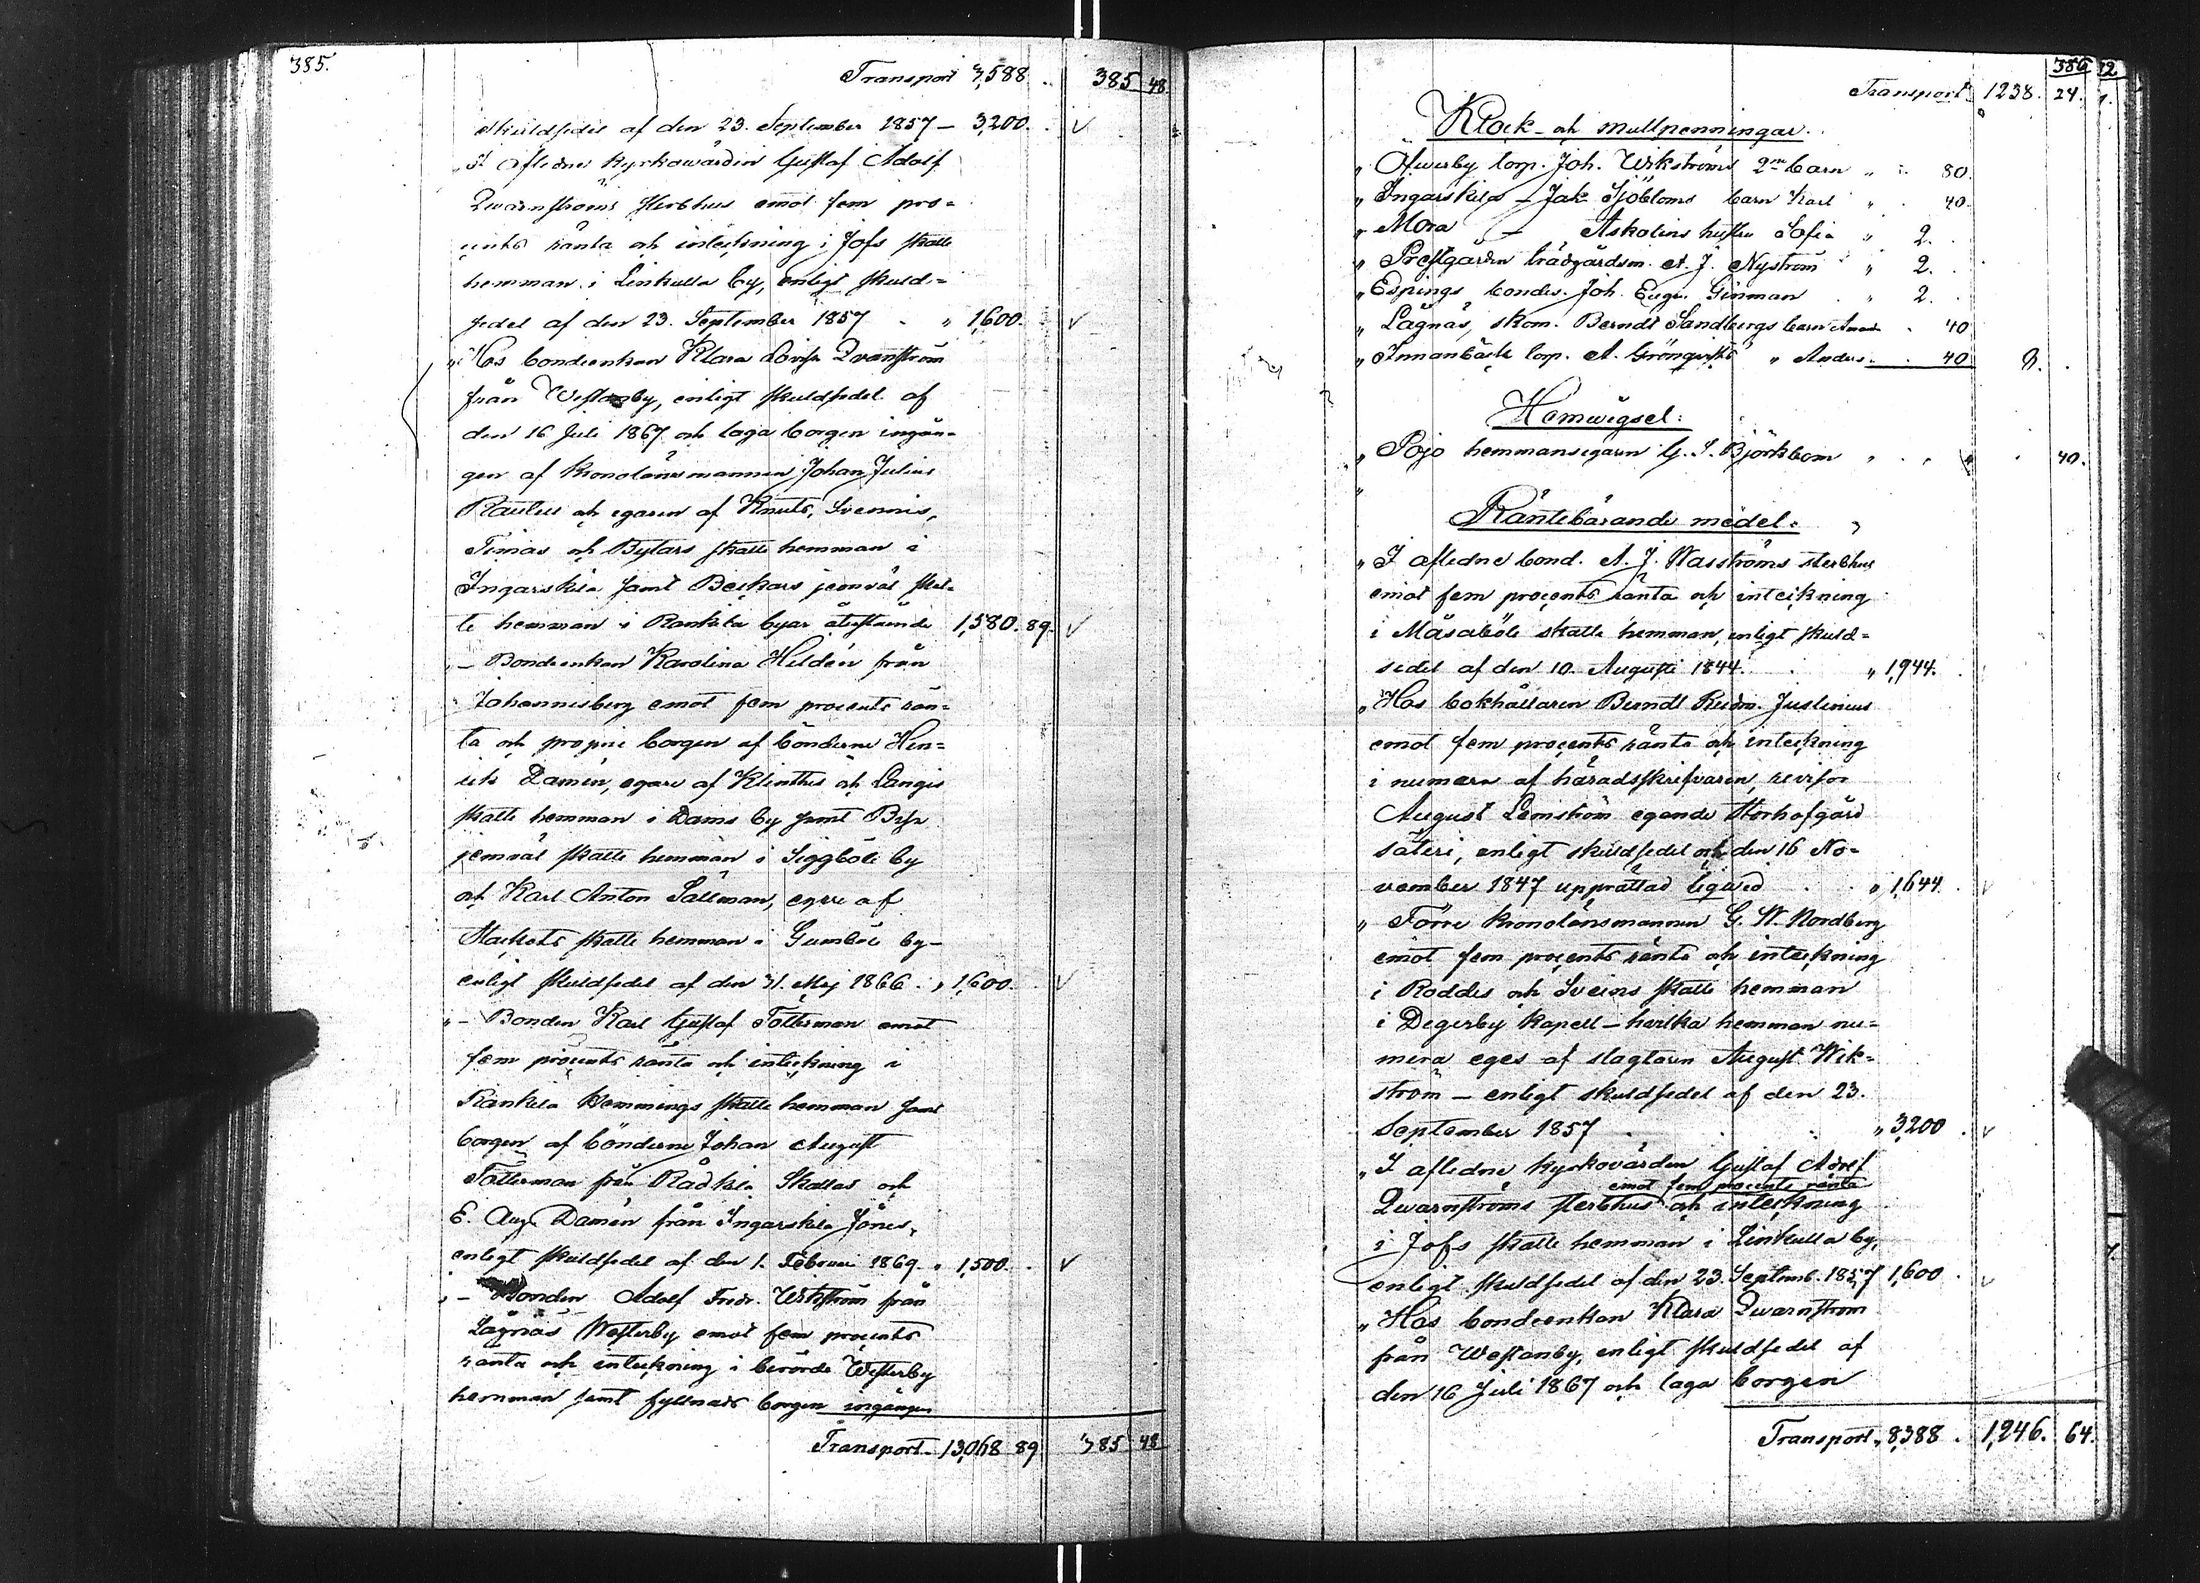 385.
Transport 3,588. 385 48.
skuldsedel af den 23. September 1857 - 3,200.
" I aflidne kyrkowärden Gustaf Adolf
Qwarnströms sterbhus emot fem pro-
cents ränta och inteckning i Jofs skatte
hemman i Linkulla by, enligt skuld-
sedel af den 23. September 1857 " 1,600.
" Hos bondeenkan Klara Lovisa Qvarnström
från Westanby, enligt skuldsedel af
den 16 Juli 1867 och laga borgen ingån-
gen af Kronolänsmannen Johan Julius
och egaren af Knuts, Svennis,
Simas och Bytars skatte hemman i
Ingarskila samt Beckars jemväl skat-
te hemman i Rankila byar återstående 1,580. 89.
" - Bondeenkan Karolina Heldén från
Johannesberg emot fem procents rän-
ta och proprie borgen af bönderne Hen-
rik Damén, egare af Klinthus och Langis
skatte hemman i Dams by samt
jemväl skatte hemman i Siggböle by
och Karl Anton Sällman, egare af
Stackots skatte hemman i Gumböle by-
enligt skuldsedel af den 31. Maj 1866 " 1,600.
" - Bonden Karl Gustaf Totterman emot
fem procents ränta och inteckning i
Rankila Hemmings skatte hemman samt
borgen af bönderne Johan August
Totterman från Rådkila Skattas och
E. Aug. Damén från Ingarskila Jönes,
enligt skuldsedel af den 1. Februari 1869 " 1,500.
" - Bonden Adolf Fredr. Wikström från
Lågnäs Westerby emot fem procents
ränta och inteckning i berörde Westerby
hemman samt fyllnads borgen ingången
Transport - 13,068 89 385 48
386 12
Transport 1238. 24.
Klock- och mullpenningar.
" Öfwerby torp. Joh. Wikströms 2ne barn " 80.
" Ingarskila - Jak. Sjöbloms barn Karl " 40.
" Mora - Askolins hustru Sofia " 2.
" Prestgården trädgårdsm. A. J. Nyström " 2.
" Espings bonden Joh. Eugen Ginman " 2.
" Lågnäs, skom. Berndt Sandbergs barn 40
" Innanbäck torp. A. Grönqvists " Anders 40 8.
Hemwigsel:
" Pojo hemmansegaren G. J. Björkbom 40.
Räntebärande medel:
" I aflidne bond. A. J. Wasströms sterbhus
emot fem procents ränta och inteckning
i Måsaböle skatte hemman, enligt skuld-
sedel af den 10. Augusti 1844. " 1,944.
" Hos bokhållaren Berndt Justinius
emot fem procents ränta och inteckning
i numera af häradsskrifvaren, revisor
August Lemström egande Storhofgård
säteri, enligt skuldsedel och den 16 No-
vember 1847 upprättad liqwid " 1,644.
" Förre kronolänsmannen G. W. Nordberg
emot fem procents ränta och inteckning
i Roddes och Sveins skatte hemman
i Degerby kapell - hvilka hemman nu-
mera eges af slagtaren August Wik-
ström - enligt skuldsedel af den 23.
September 1857 " 3,200
" I aflidne kyrkovärden Gustaf Adolf
emot fem procents ränta
Qwarnströms sterbhus och inteckning
i Jofs skatte hemman i Linkulla by,
enligt skuldsedel af den 23. Septemb. 1857 1,600
" Hos bondeenkan Klara Qwarnström
från Westanby, enligt skuldsedel af
den 16 Juli 1867 och laga borgen
Transport " 8,388 1,246. 64.